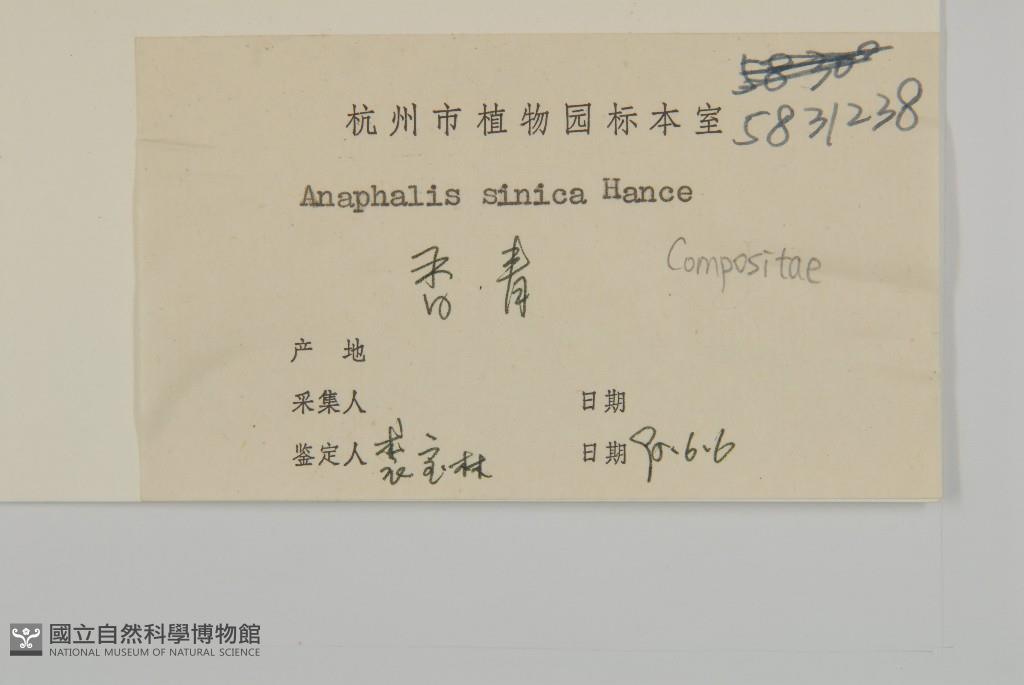 杭州市植物园标本室
5831238
Anaphalis sinica Hance
香青
Compositae
产 地
采集人 日期
鉴定人 裘宝林 日期 90.6.6
國立自然科學博物館
NATIONAL MUSEUM OF NATURAL SCIENCE